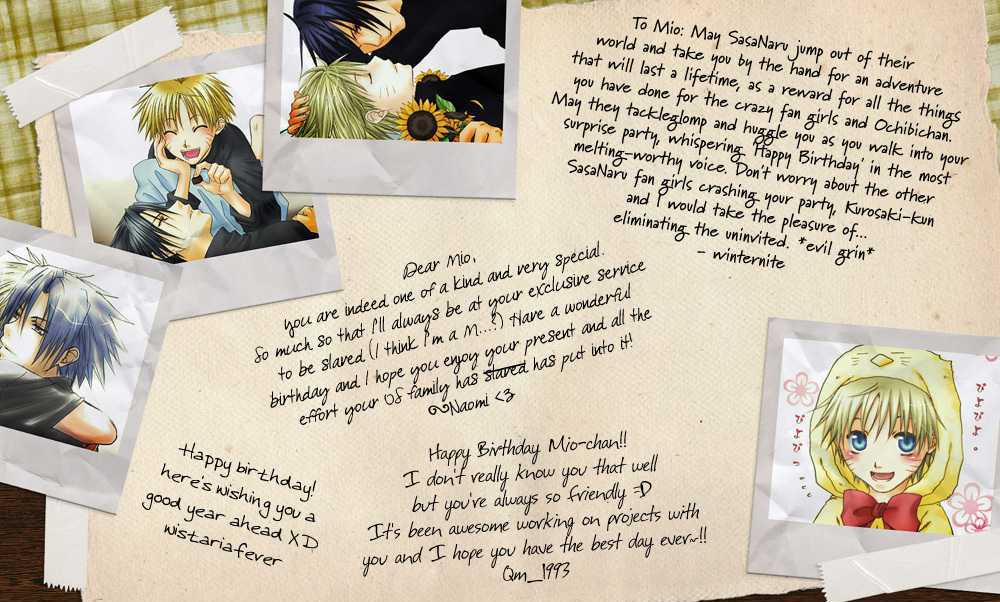 To Mio: May SasaNaru jump out of their
world and take you by the hand for an adventure
that will last a lifetime, as a reward for all the things
you have done for the crazy fan girls and Ochibichan.
May they tackleglomp and huggle you as you walk into your
surprise party, whispering 'Happy Birthday' in the most
melting-worthy voice. Don't worry about the other
SasaNaru fan girls crashing your party, Kurosaki-kun
and I would take the pleasure of...
eliminating the uninvited. *evil grin*
- winternite
Dear Mio,
you are indeed one of a kind and very special.
So much so that I'll always be at your exclusive service
to be slaved (I think I'm a M...?) Have a wonderful
birthday and I hope you enjoy your present and all the
effort your OS family has slaved has put into it!
Naomi <3
Happy birthday!
here's wishing you a
good year ahead XD
wistariafever
Happy Birthday Mio-chan!!
I don't really know you that well
but you're always so friendly =D
It's been awesome working on projects with
you and I hope you have the best day ever~!!
Qm_1993
ぴよぴよ。
ぴよぴよっ